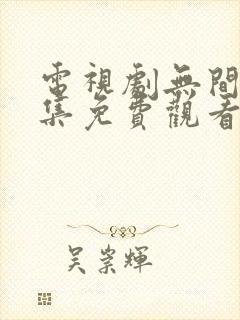 電視劇無間
集免費觀看
吳崇輝